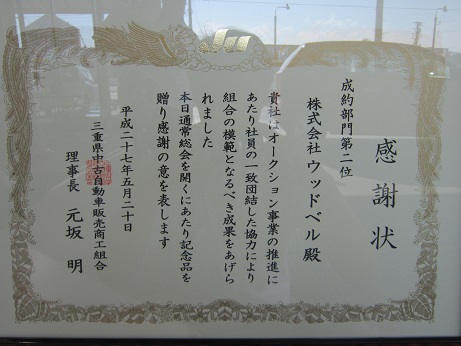 感謝状
成約部門第二位
株式会社 ウッドベル 殿
貴社はオークション事業の推進に
あたり社員の一致団結した協力により
組合の模範となるべき成果をあげら
れました
本日通常総会を開くにあたり記念品を
贈り感謝の意を表します
平成二十七年五月二十日
三重県中古自動車販売商工組合
理事長 元坂 明